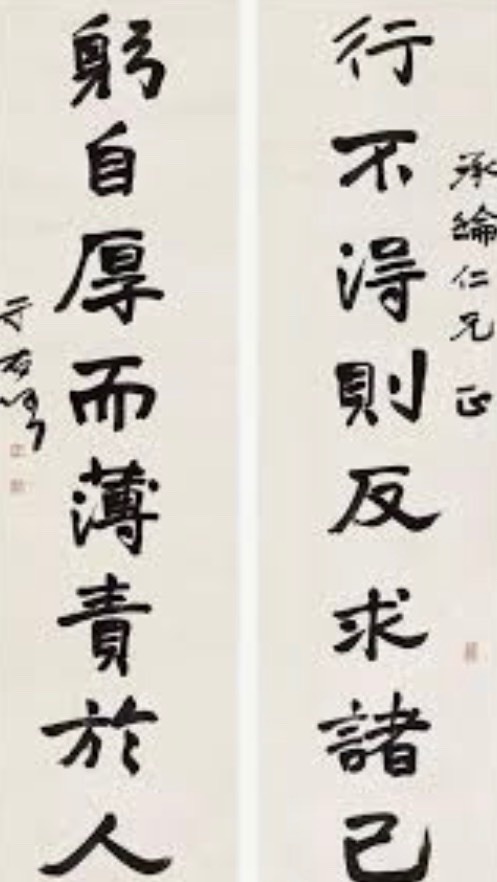 承綸仁兄 正
行不得則反求諸己
躬自厚而薄責於人
于右任